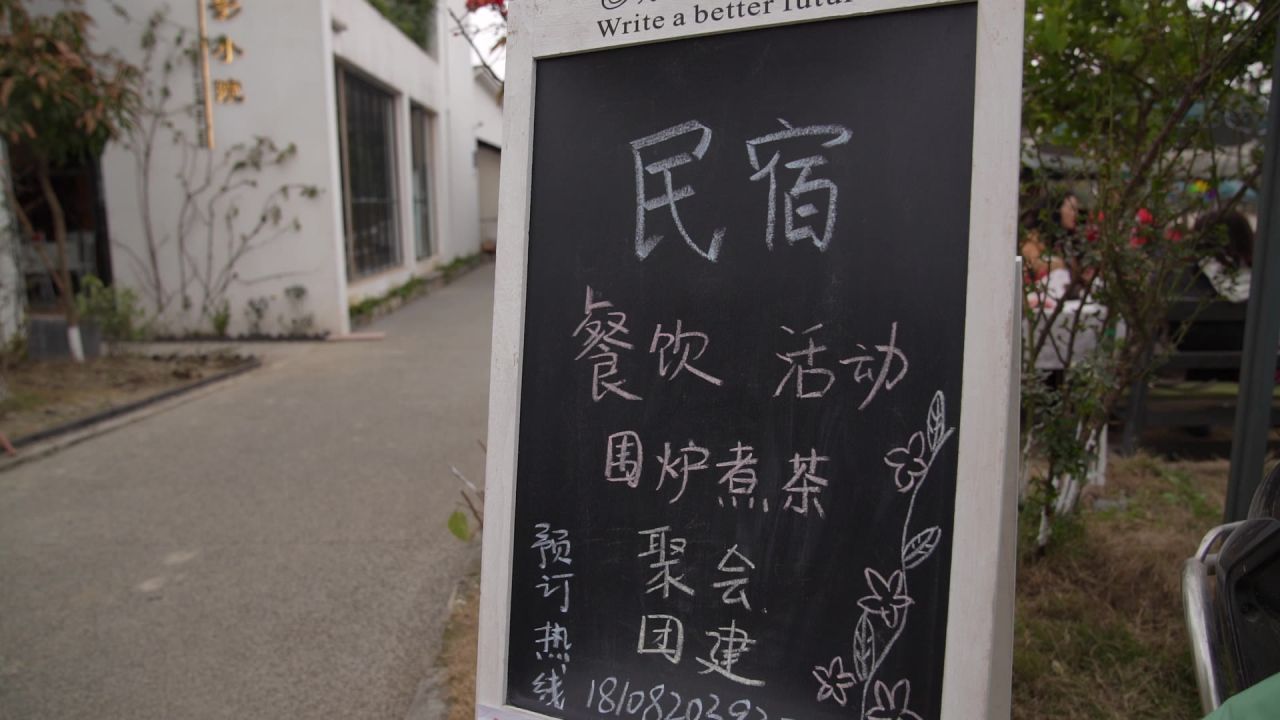 Write a better futur
小院
民宿
餐饮 活动
围炉煮茶
聚会
团建
预订热线
1810820392